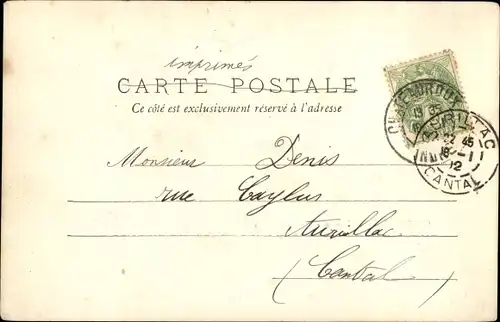 imprimés
CARTE POSTALE
Ce côté est exclusivement réservé à l'adresse
Monsieur Denis
rue Caylus
Aurillac
(Cantal
CHATEAUROUX
AURILLAC
CANTAL